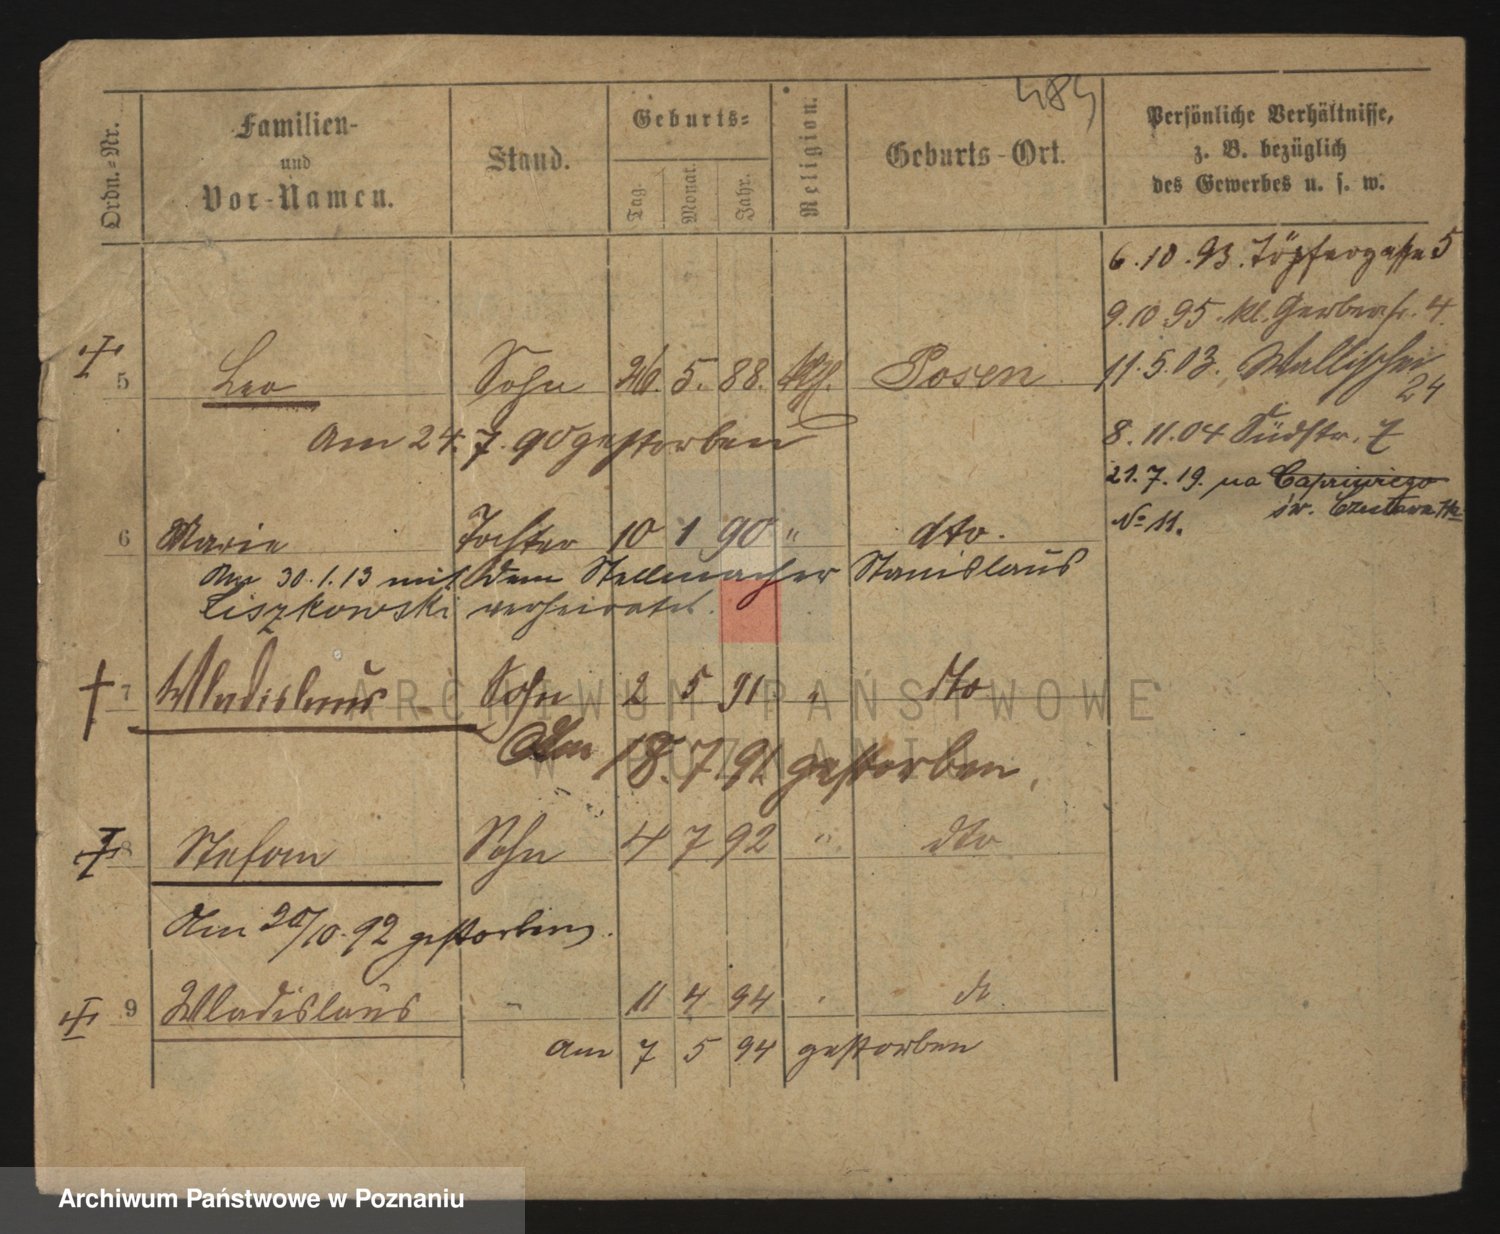 484
Ordn.-Nr.
Familien-
und
Vor-Namen.
Stand.
Geburts-
Tag.
Monat.
Jahr.
Religion.
Geburts-Ort.
Persönliche Verhältnisse,
z. B. bezüglich
des Gewerbes u. s. w.
6.10.93. Töpfergasse 5
9.10 95. kl. Gerberstr. 4.
5 Leo Sohn 26. 5. 88. kth. Posen 11.5.03. Wallischei
24
am 24.7.90 gestorben
8.11.04 Südstr. 7
21.7.19. na Capriviego
św. Czesława
6 Marie Tochter 10 1 90 " dto. № 11.
Am 30.1.13 mit dem Stellmacher Stanislaus
Liszkowski verheiratet.
7 Wladislaus Sohn 2 5 91 " dto
Am 18.7 91 gestorben.
8 Stefan Sohn 4 7 92 " dto
Am 20/10.92 gestorben.
9 Wladislaus " 11 4 94 " dt.
am 7 5 94 gestorben
ARCHIWUM PAŃSTWOWE
W POZNANIU
Archiwum Państwowe w Poznaniu